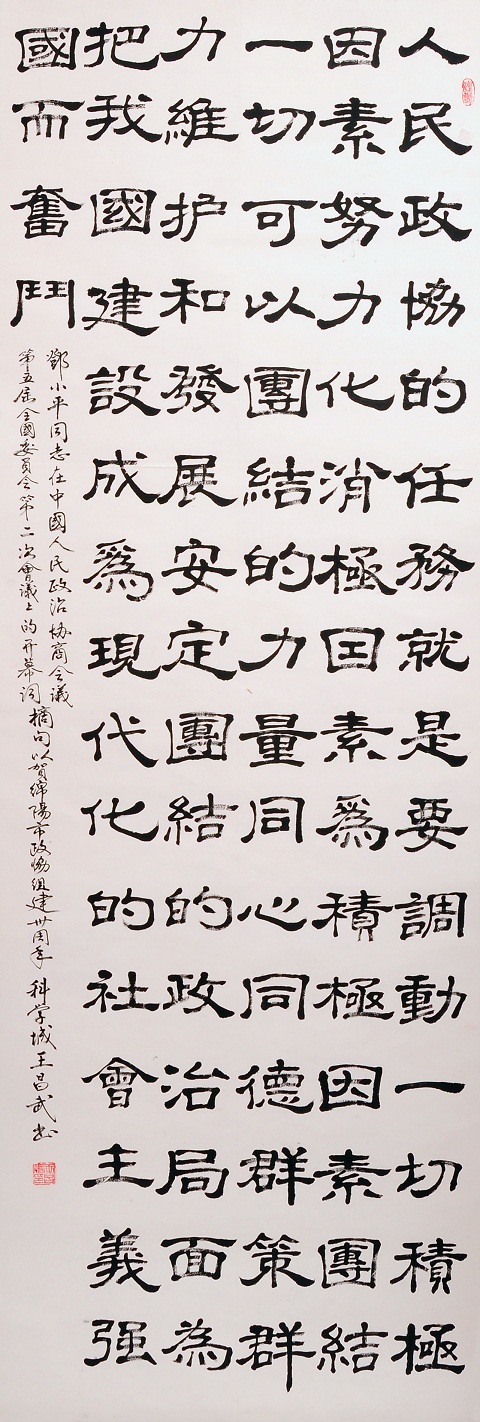 人民政協的任務就是要調動一切積極
因素努力化消極囙素爲積極因素團結
一切可以團結的力量同心同德群策群
力維护和發展安定團結的政治局面為
把我國建設成爲現代化的社會主義强
國而奮鬥
鄧小平同志在中國人民政治协商会議
第五届全國委員会第二次會議上的开幕词摘句以贺綿陽市政協組建卅周年 科学城王昌武书